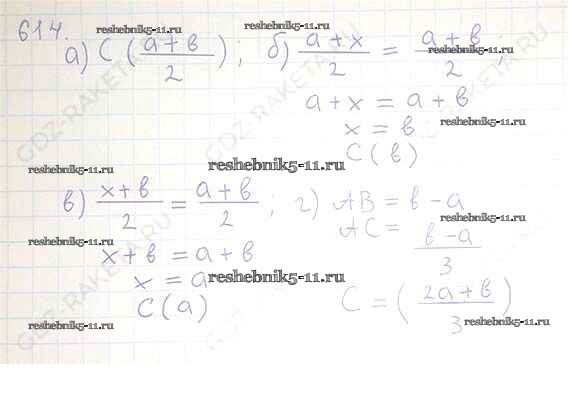 614.
а) C ((a+b)/2) ; б) (a+x)/2 = (a+b)/2 ;
a+x = a+b
x = b
C(b)
в) (x+b)/2 = (a+b)/2 ; г) AB = b-a
x+b = a+b
AC = (b-a)/3
x = a
C(a)
C = ((2a+b)/3)
reshebnik5-11.ru
reshebnik5-11.ru
reshebnik5-11.ru
reshebnik5-11.ru
reshebnik5-11.ru
reshebnik5-11.ru
reshebnik5-11.ru
reshebnik5-11.ru
reshebnik5-11.ru
reshebnik5-11.ru
reshebnik5-11.ru
reshebnik5-11.ru
GDZ-RAKETA.RU
GDZ-RAKETA.RU
GDZ-RAKETA.RU
GDZ-RAKETA.RU